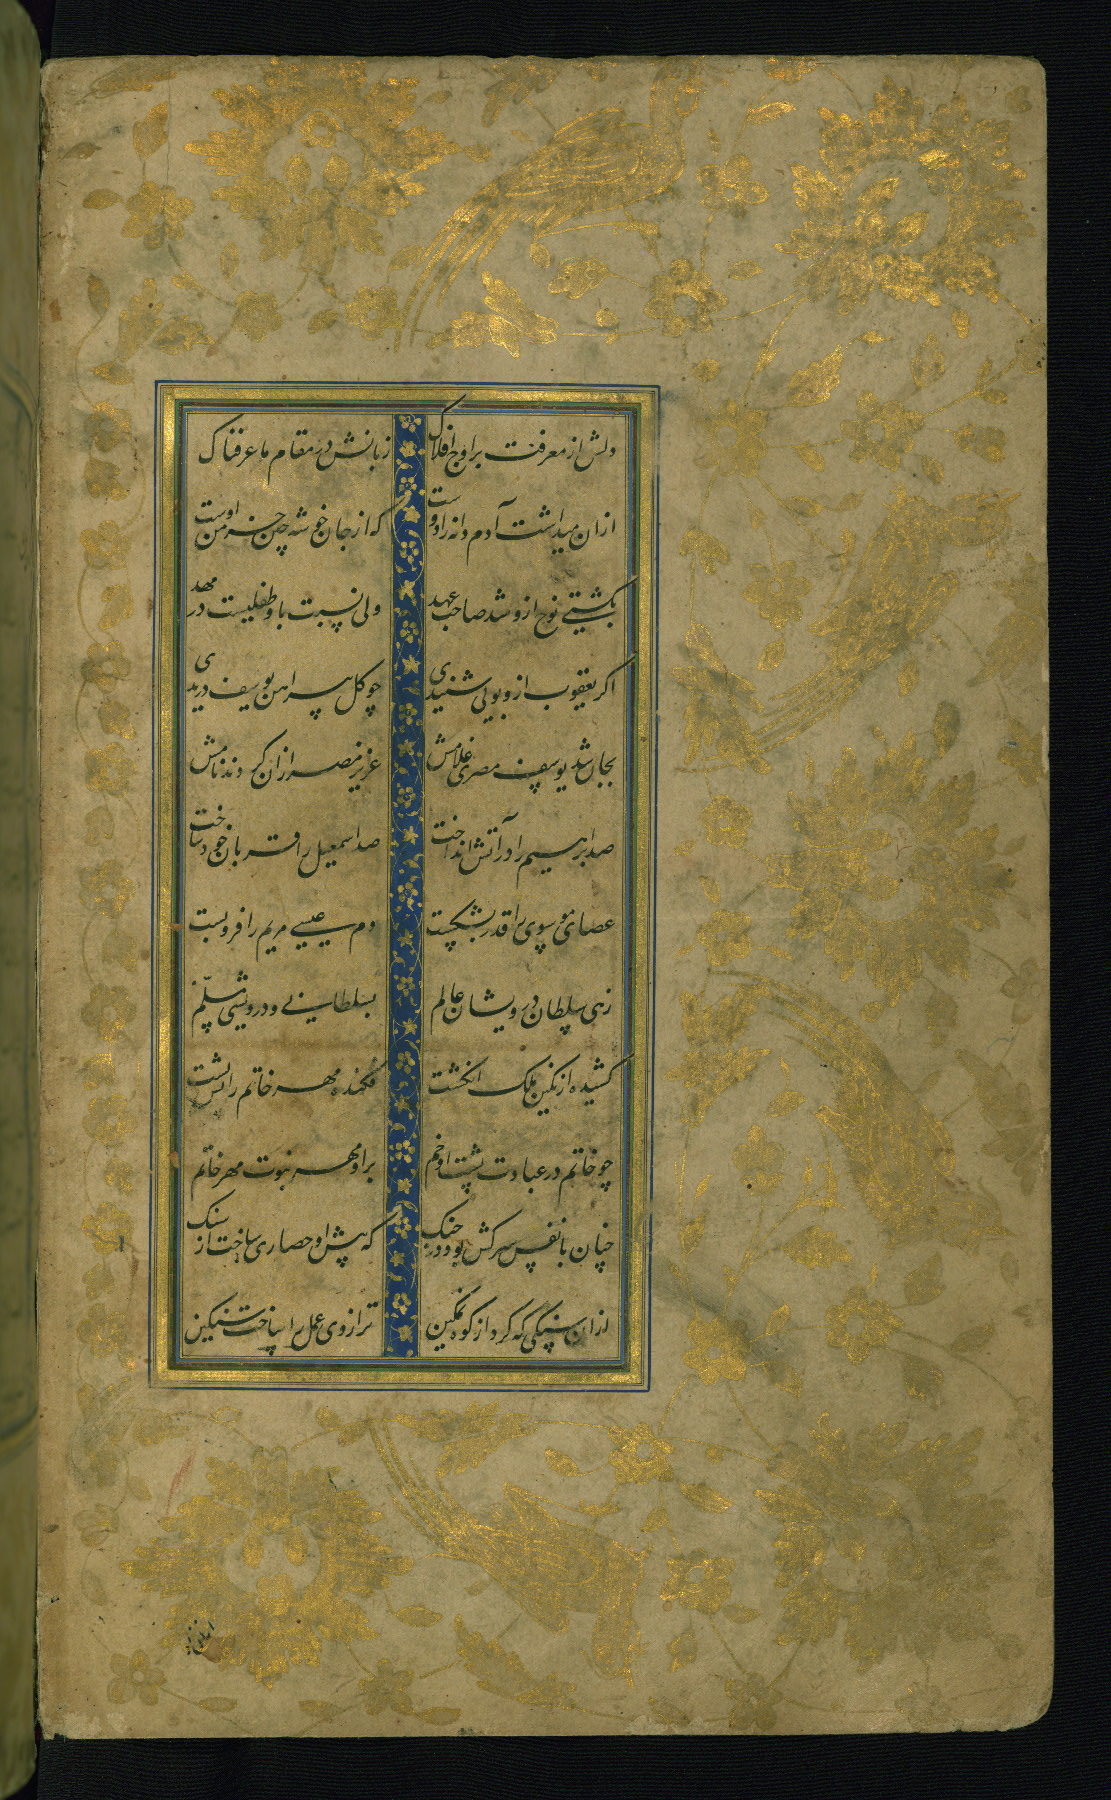 دلش از معرفت بر اوج افلاک زبانش در مقام ما عرفناک
ازان میداشت آدم دانه را دوست که از جان خوشه چین خرمن اوست
بکشتی نوح ازو شد صاحب عهد ولی نسبت باو طفلیست در مهد
اکر یعقوب ازو بویی شنیدی چو کل پیراهن یوسف دریدی
بجان شد یوسف مصری غلامش عزیز مصر ازان کردند نامش
صد ابرهیم را در آتش انداخت صد اسمعیل را قربان خود ساخت
عصای موسوی را قدر بشکست دم عیسی مریم را فرو بست
زهی سلطان درویشان عالم بسلطانی و درویشی مسلّم
کشیده از نکین ملک انکشت فکنده مهر خاتم را پس پشت
چو خاتم در عبادت پشت او خم برو مهر نبوت مهر خاتم
چنان با نفس سرکش بود در جنک که پیش او حصاری ساخت از سنک
ازان سنکی که کرد از کوه تمکین ترازوی عمل را ساخت سنکین